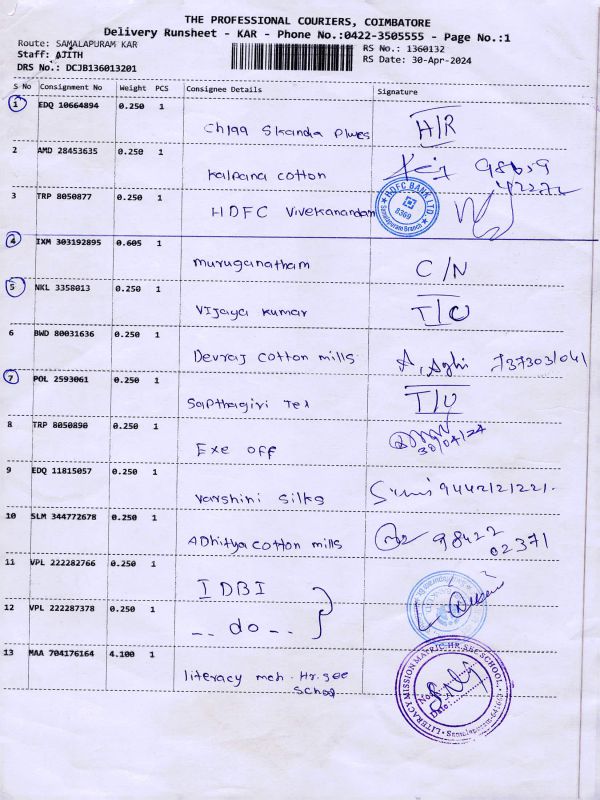 THE PROFESSIONAL COURIERS, COIMBATORE
Delivery Runsheet - KAR - Phone No.:0422-3505555 - Page No.:1
Route: SAMALAPURAM KAR
RS No.: 1360132
Staff: AJITH
RS Date: 30-Apr-2024
DRS No.: DCJB136013201
S No Consignment No Weight PCS Consignee Details Signature
1 EDQ 10664894 0.250 1
Skanda H/R
2 AMD 28453635 0.250 1
Kalpana cotton
3 TRP 8050877 0.250 1
HDFC Vivekanandam
HDFC BANK LTD
8369
Samalapuram Branch
4 IXM 303192895 0.605 1
muruganatham C/N
5 NKL 3358013 0.250 1
Vijaya kumar
6 BWD 80031636 0.250 1
Devraj cotton mills
7 POL 2593061 0.250 1
Sapthagiri Tex
8 TRP 8050890 0.250 1
Exe off 30/04/24
9 EDQ 11815057 0.250 1
Varshini Silks
10 SLM 344772678 0.250 1
ADhitya cotton mills 98422
02371
11 VPL 222282766 0.250 1
IDBI
12 VPL 222287378 0.250 1
-- do --
13 MAA 704176164 4.100 1
literacy mch. Hr. see
School
LITERACY MISSION MATRIC HR. SEC SCHOOL
No:
Date: